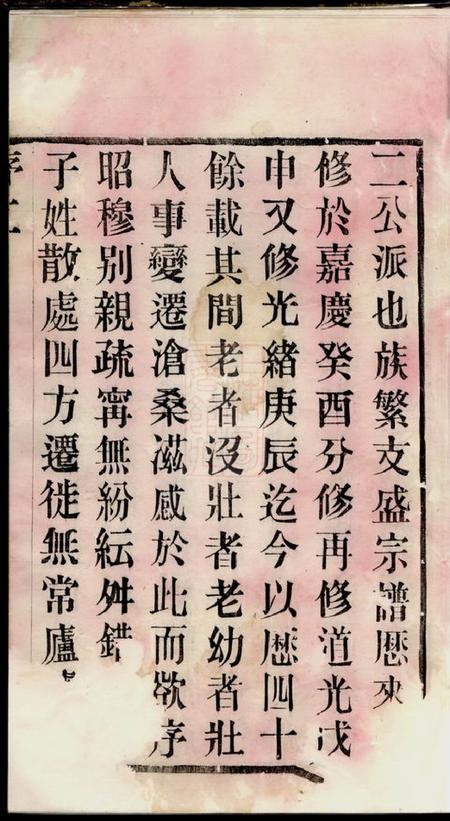 二公派也族繁支盛宗譜歷來
修於嘉慶癸酉分修再修道光戊
申又修光緒庚辰迄今以歷四十
餘載其間老者沒壯者老幼者壯
人事變遷滄桑滋感於此而欲序
昭穆別親疏寗無紛紜舛錯
子姓散處四方遷徙無常廬